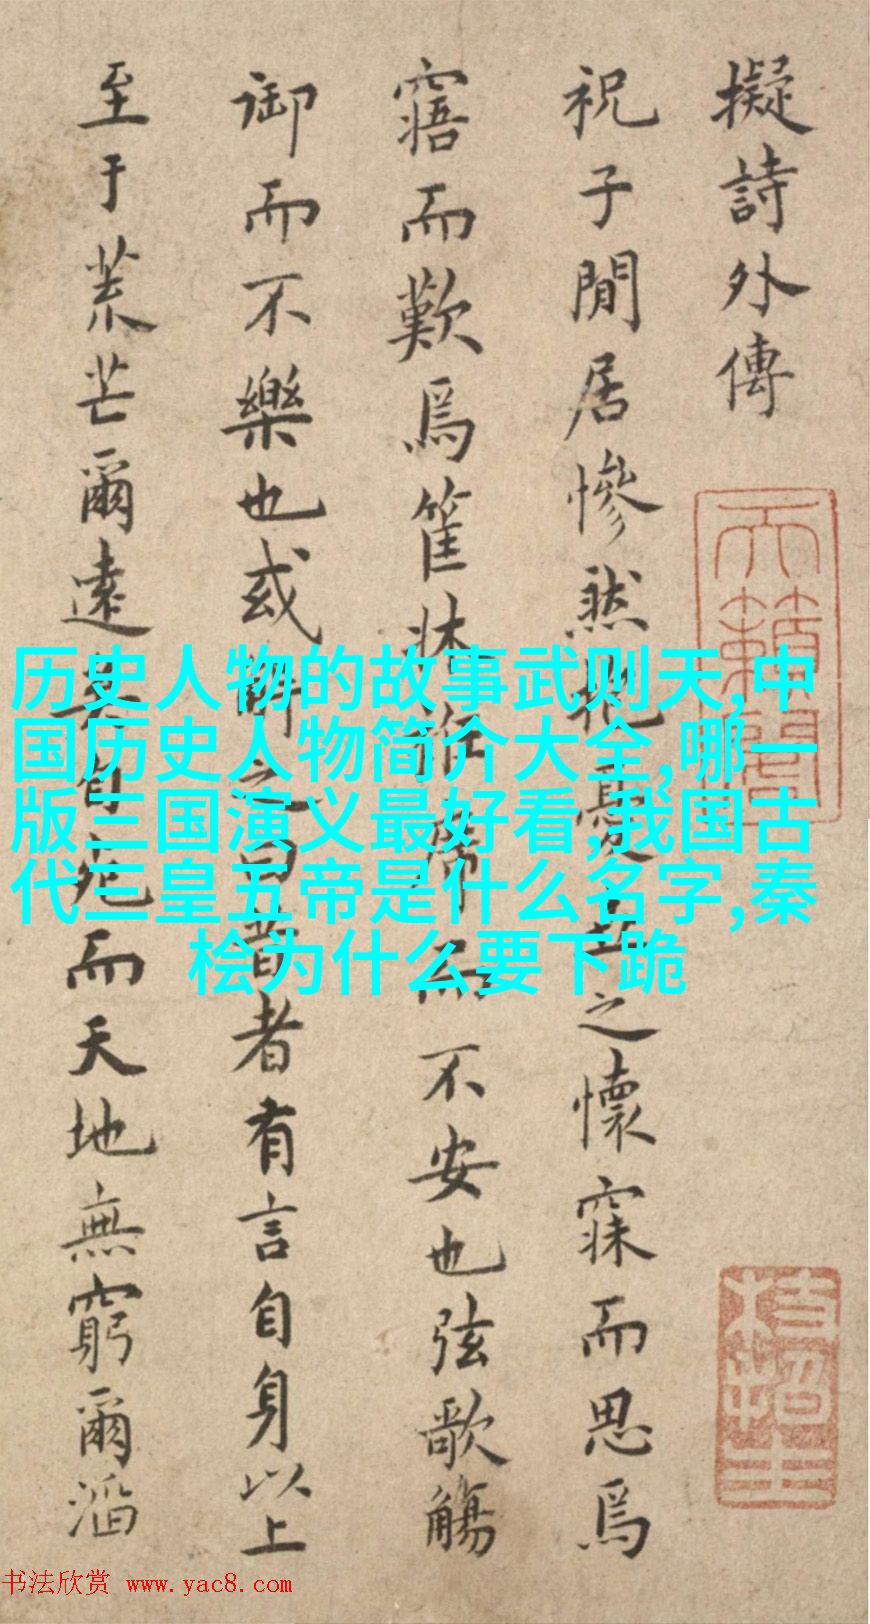 擬詩外傳
祝子閒居慘然抱憂之懷寐而思焉
寤而歎焉筐牀衽席而不安也弦歌觴
御而不樂也或之曰昔者有言自身以上
至于荒芒爾遠矣自死而天地無窮爾滔
天籟閣
枝指生
历史人物的故事武则天,中
国历史人物简介大全,哪一
版三国演义最好看,我国古
代三皇五帝是什么名字,秦
桧为什么要下跪
书法欣赏 www.yac8.com